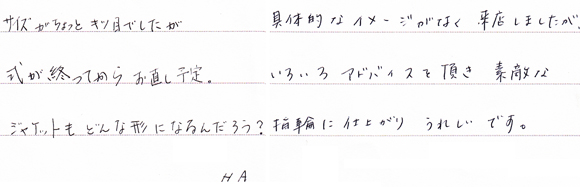 サイズがちょっとキツ目でしたが
式が終ってからお直し予定。
ジャケットもどんな形になるんだろう?
HA
具体的なイメージがなく来店しましたが、
いろいろアドバイスを頂き素敵な
指輪に仕上がりうれしいです。